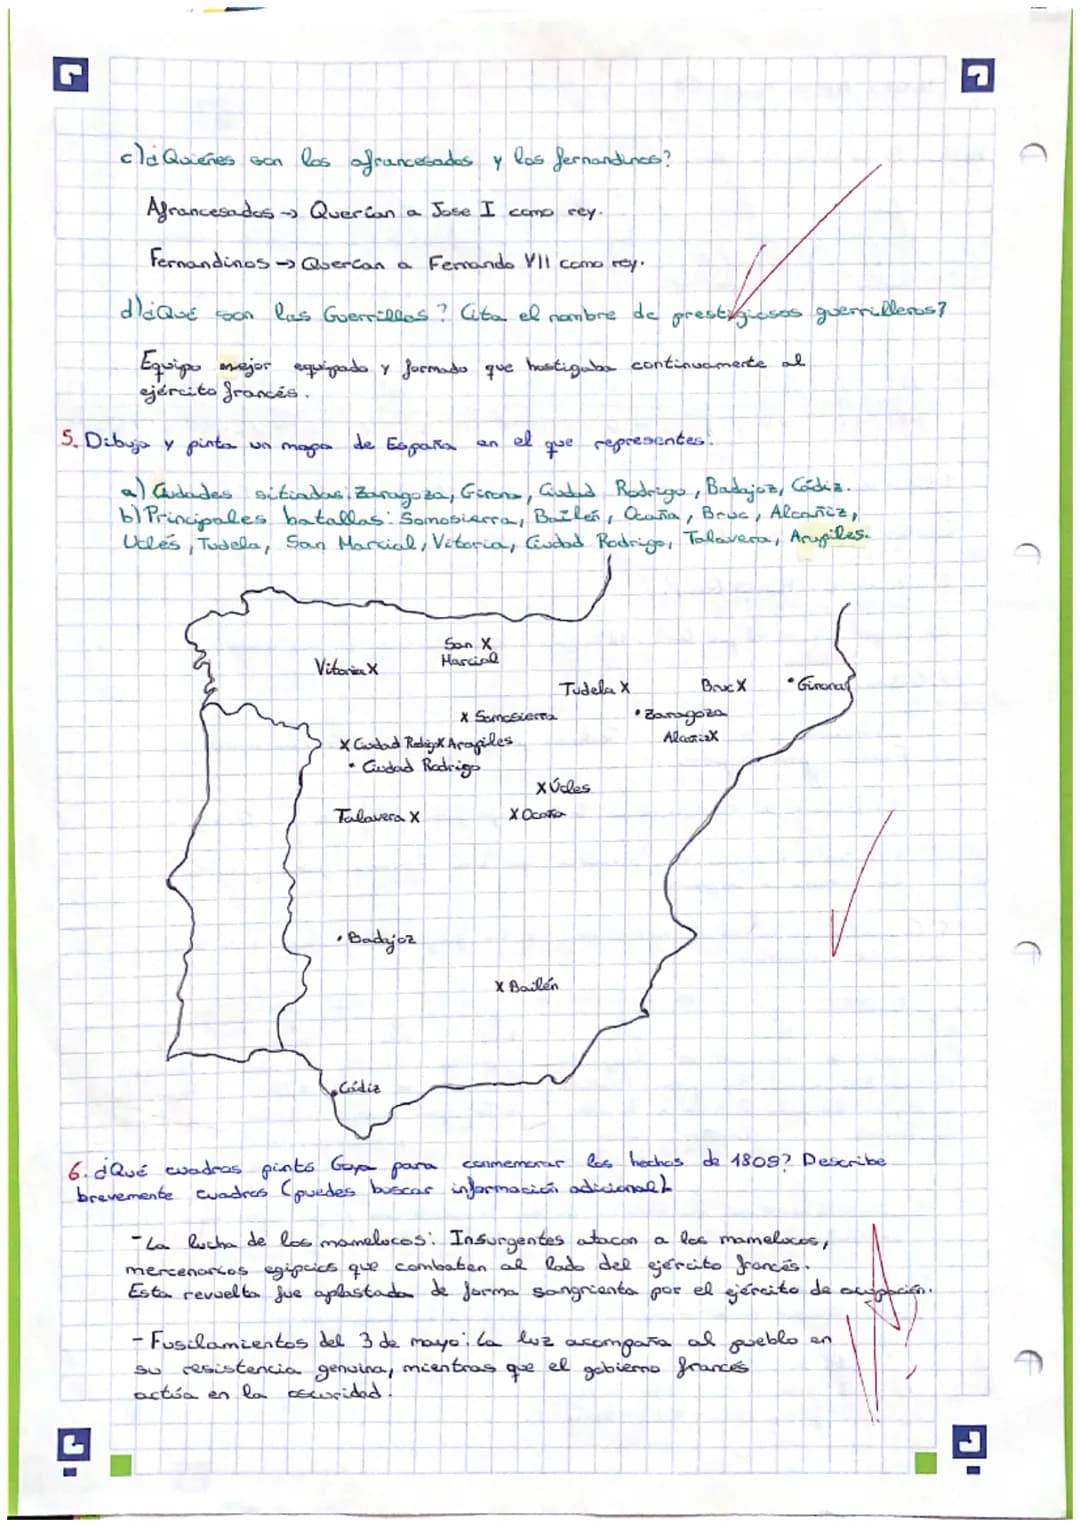 c)¿Quienes son los afrancesados y los fernandinos?
Afrancesados → Querían a Jose I como rey.
Fernandinos → Querían a Fernando VII como rey.
d)¿Qué son las Guerrillas? Cita el nombre de prestigiosos guerrilleros?
Equipo mejor equipado y formado que hostigaba continuamente al
ejército francés.
5. Dibuja y pinta un mapa de España en el que representes:
a) Ciudades sitiadas: Zaragoza, Girona, Ciudad Rodrigo, Badajoz, Cádiz.
b) Principales batallas: Somosierra, Bailén, Ocaña, Bruc, Alcañiz,
Uclés, Tudela, San Marcial, Vitoria, Ciudad Rodrigo, Talavera, Arapiles.
San X
Marcial
Vitoria X
Tudela X
Bruc X
• Girona
X Somosierra
• Zaragoza
Alcañiz X
X Ciudad Rodrigo X Arapiles
• Ciudad Rodrigo
X Úcles
Talavera X
X Ocaña
• Badajoz
X Bailén
• Cádiz
6. ¿Qué cuadros pintó Goya para conmemorar los hechos de 1808? Describe
brevemente cuadros (puedes buscar información adicional).
- La lucha de los mamelucos: Insurgentes atacan a los mamelucos,
mercenarios egipcios que combaten al lado del ejército francés.
Esta revuelta fue aplastada de forma sangrienta por el ejército de ocupación.
- Fusilamientos del 3 de mayo: La luz acompaña al pueblo en
su resistencia genuina, mientras que el gobierno francés
actúa en la oscuridad.